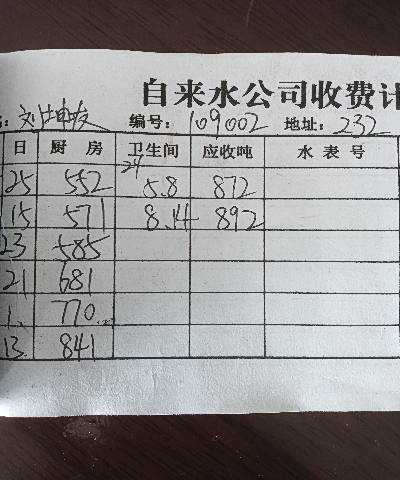 自来水公司收费计
编号: 109002 地址: 232
日 厨 房 卫生间 应收吨 水 表 号
24
25 552 5.8 872
15 571 8.14 892
23 585
21 681
1. 770
13. 841